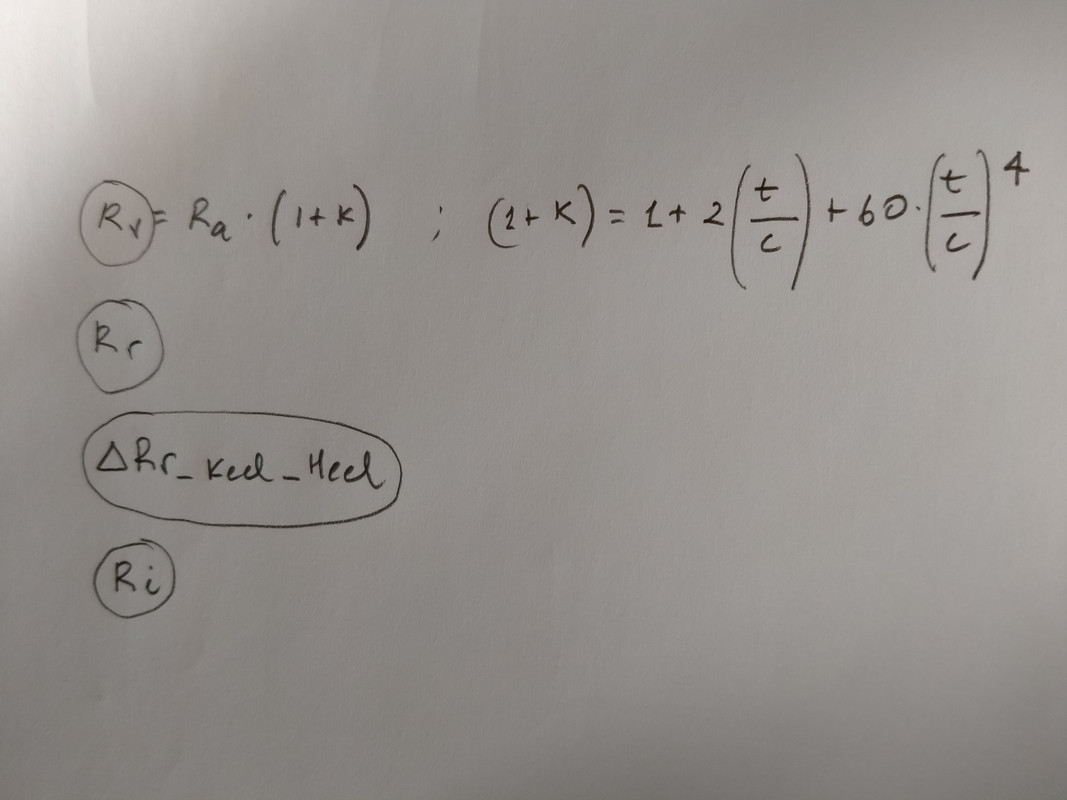 Rv = Ra · (1+K) ; (1+K) = 1 + 2 (t/c) + 60 · (t/c)^4
Rr
ΔRr_Keel_Heel
Ri